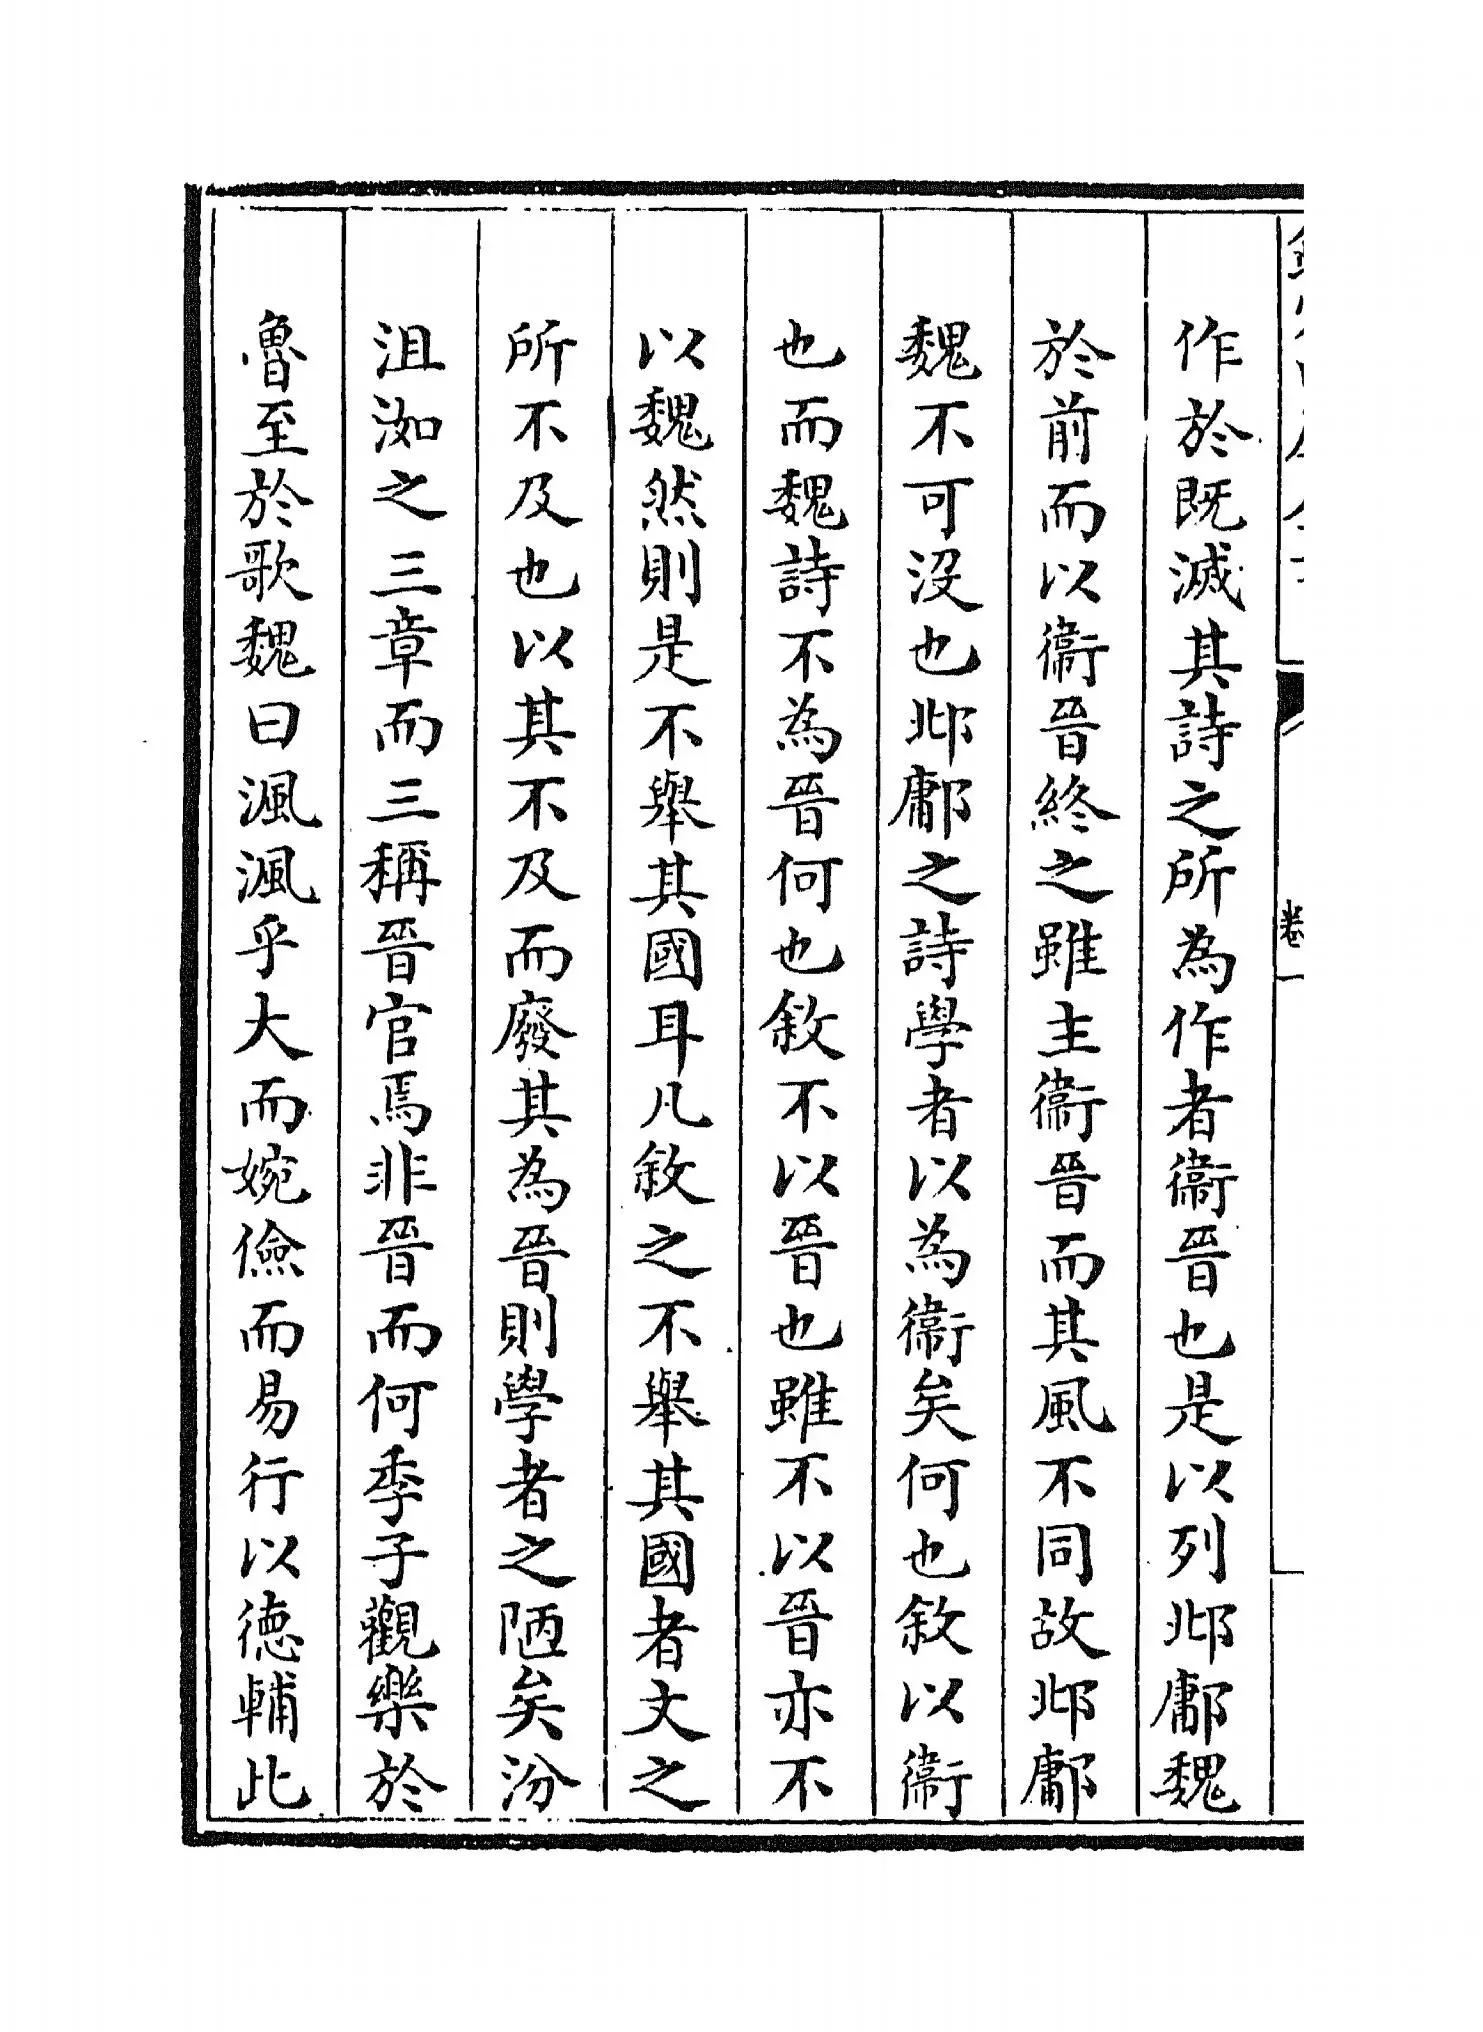 作於既滅其詩之所為作者衞晉也是以列邶鄘魏
於前而以衞晉終之雖主衞晉而其風不同故邶鄘
魏不可沒也邶鄘之詩學者以為衞矣何也敘以衞
也而魏詩不為晉何也敘不以晉也雖不以晉亦不
以魏然則是不舉其國耳凡敘之不舉其國者文之
所不及也以其不及而廢其為晉則學者之陋矣汾
沮洳之三章而三稱晉官焉非晉而何季子觀樂於
魯至於歌魏曰渢渢乎大而婉儉而易行以徳輔此
卷一